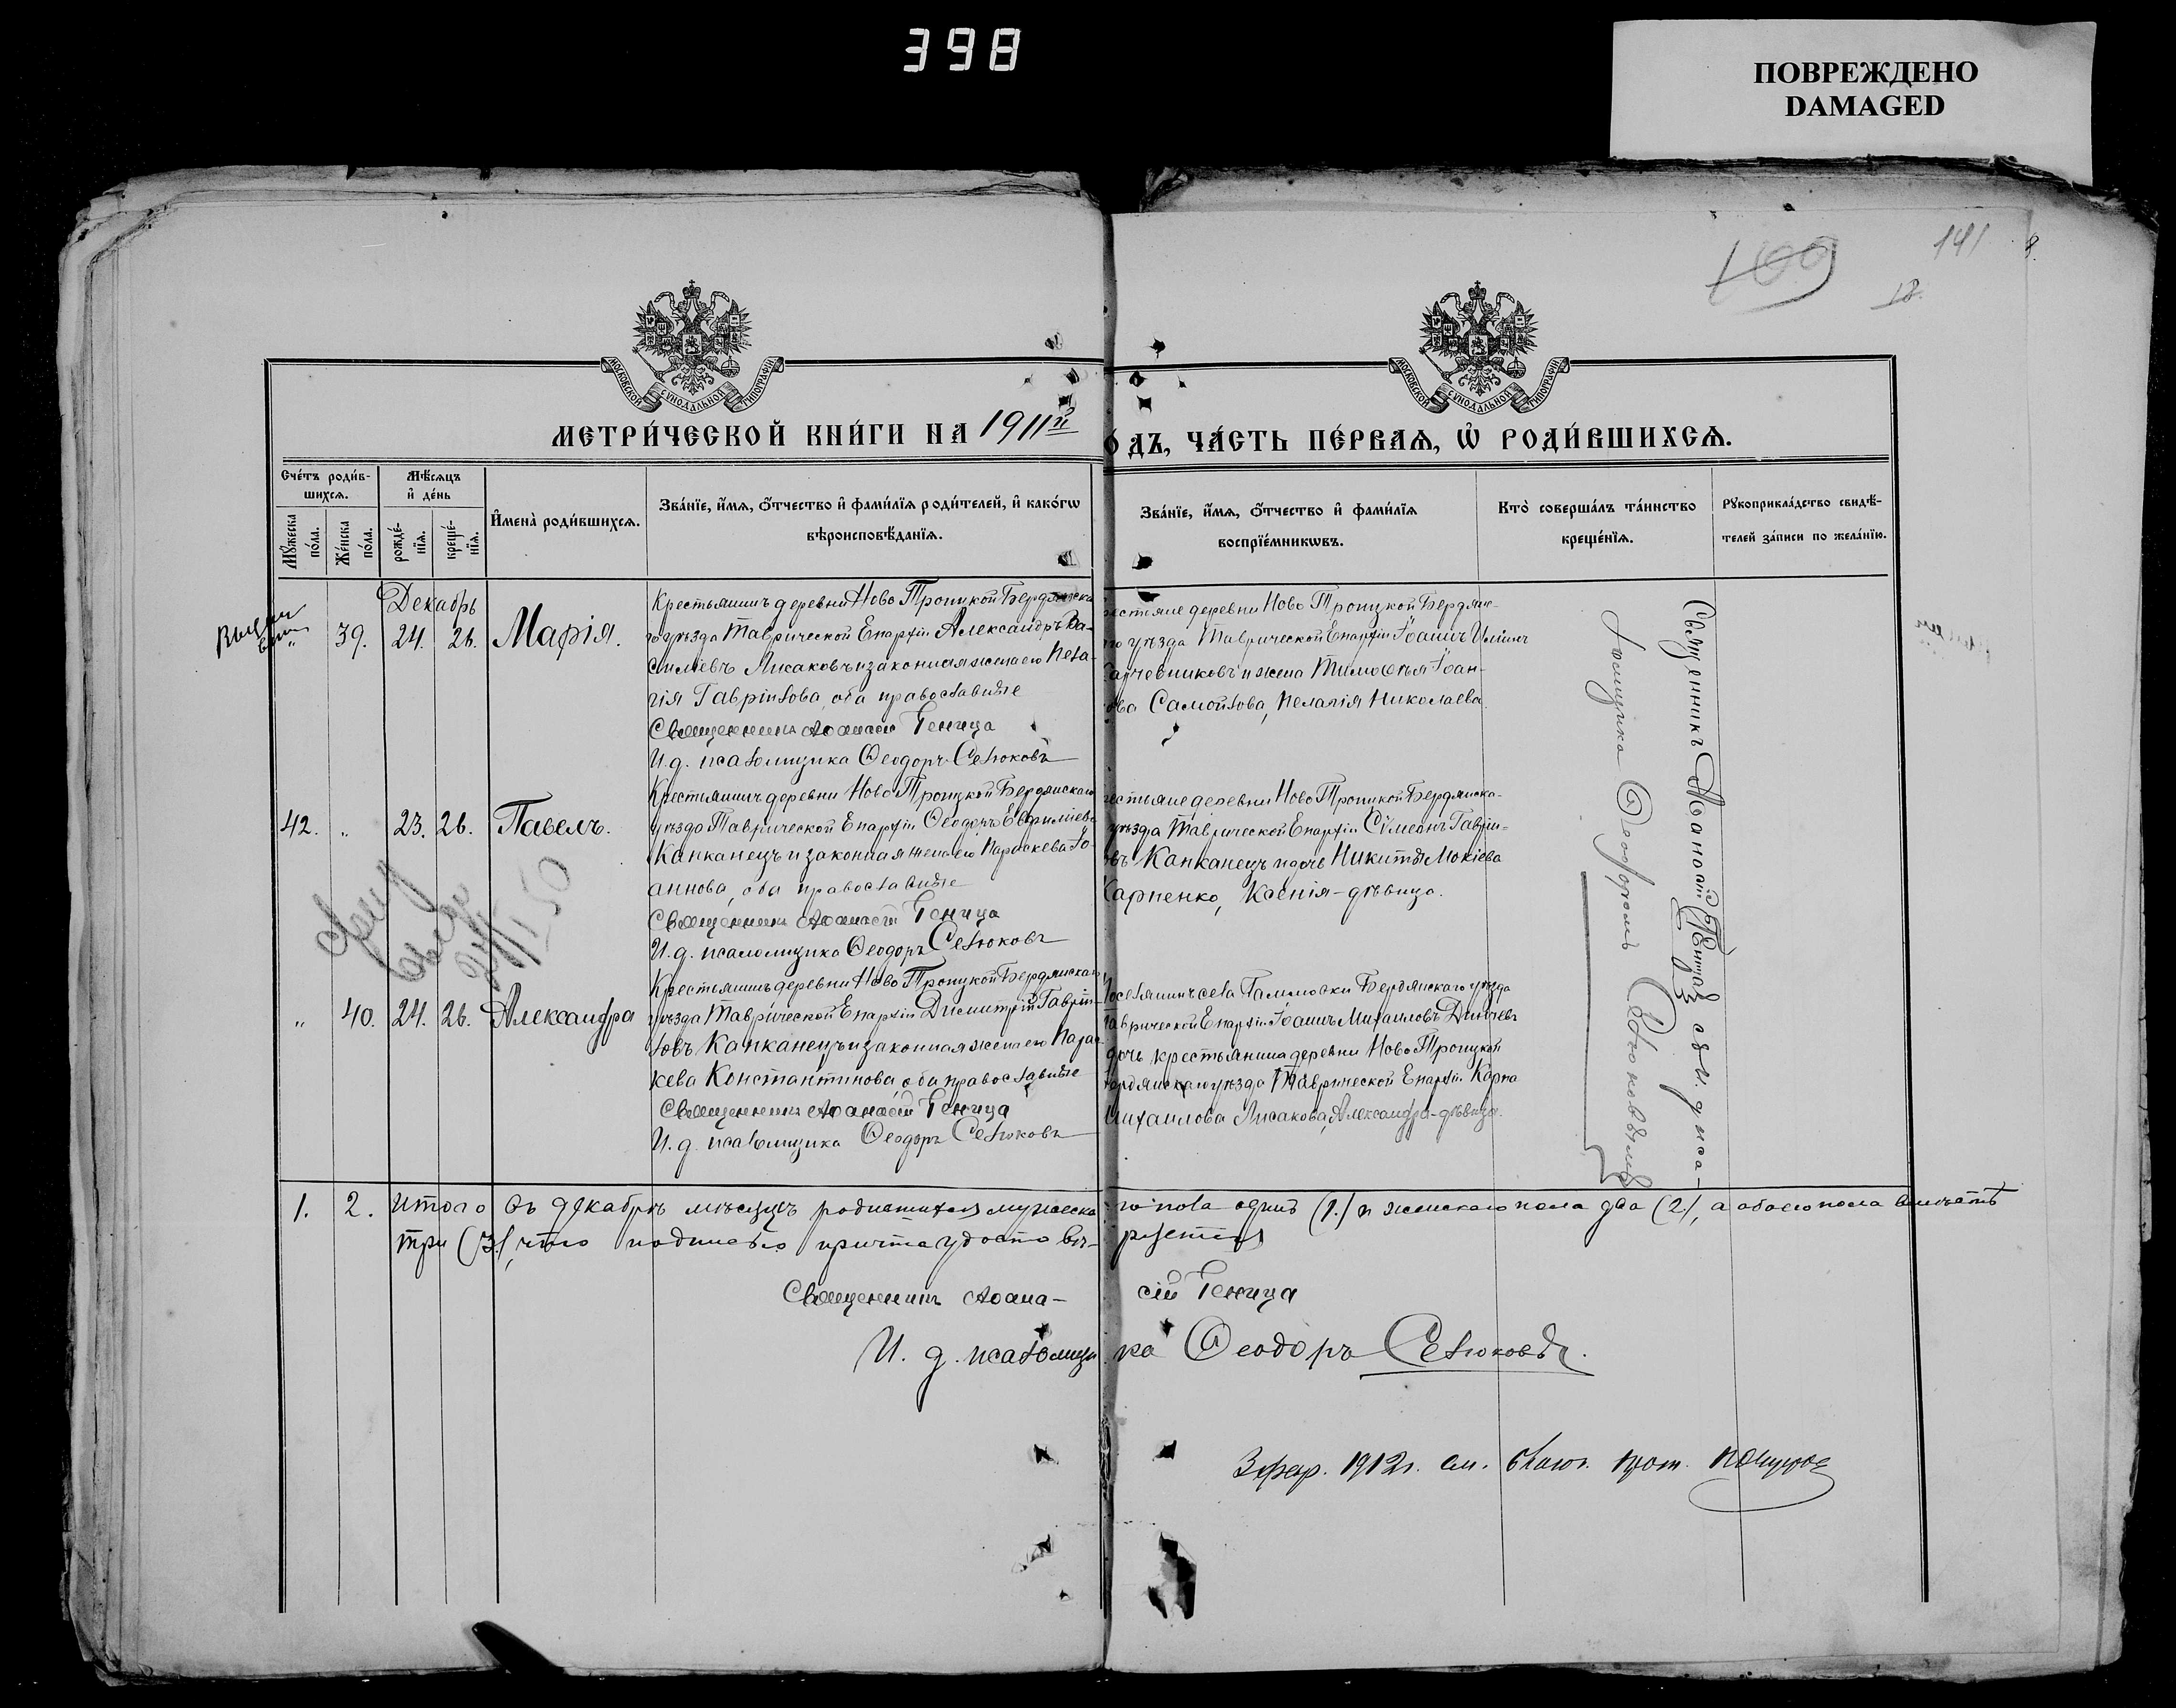 398
ПОВРЕЖДЕНО
DAMAGED
109
141
МОСКОВСКОЙ СѴНОДАЛЬНОЙ ТИПОГРАФІИ
МОСКОВСКОЙ СѴНОДАЛЬНОЙ ТИПОГРАФІИ
МЕТРИ́ЧЕСКОЙ КНИ́ГИ НА 1911й
О́ДЪ, ЧА́СТЬ ПЕ́РВАѦ, Ѡ҆ РОДИ́ВШИХСѦ.
Сче́тъ роди́в-
шихсѧ.
Мѣ́сѧцъ
и҆ де́нь
Мꙋ́жеска по́ла.
Же́нска по́ла.
рожде́-нїѧ.
креще́-нїѧ.
И҆мена̀ роди́вшихсѧ.
Зва́нїе, и҆́мѧ, ѻ҆́тчество и҆ фами́лїѧ роди́телей, и҆ како́гѡ
вѣроисповѣ́данїѧ.
Зва́нїе, и҆́мѧ, ѻ҆́тчество и҆ фами́лїѧ
воспрїе́мникѡвъ.
Кто̀ соверша́лъ та́инство
креще́нїѧ.
Рꙋкоприкла́дство свидѣ́-
телей за́писи по жела́нїю.
Декабрь
„ 39. 24. 26. Марія.
Крестьянинъ деревни Ново Троицкой Бердянска-
го уѣзда Таврической Епархіи Александръ Ва-
силіевъ Лисаковъ и законная жена его Пела-
гія Гавріилова, оба православные
Священникъ Аѳанасій Геница
И. д. псаломщика Ѳеодоръ Селюковъ
рестьяне деревни Ново Троицкой Бердянс-
го уѣзда Таврической Епархіи Іоаннъ Иліинъ
и жена Тимоѳея Іоан-
ова Самойлова, Пелагія Николаева.
42. „ 23. 26. Павелъ.
Крестьянинъ деревни Ново Троицкой Бердянскаго
уѣзда Таврической Епархіи Ѳеодоръ Евфиміевъ
Капканецъ и законная жена его Параскева Іо-
аннова, оба православные
Священникъ Аѳанасій Геница
И. д. псаломщика Ѳеодоръ Селюковъ
рестьяне деревни Ново Троицкой Бердянска-
уѣзда Таврической Епархіи Сѵмеонъ Гавріи-
овъ Капканецъ и дочь Никиты Мокіева
Карпенко, Ксенія - дѣвица.
„ 40. 24. 26. Александра
Крестьянинъ деревни Ново Троицкой Бердянскаго
уѣзда Таврической Епархіи Димитрій Гавріи-
ловъ Капканецъ и законная жена его Парас-
кева Константинова оба православные
Священникъ Аѳанасій Геница
И. д. псаломщика Ѳеодоръ Селюковъ
Поселянинъ села Бердянскаго уѣзда
Таврической Епархіи Іоаннъ Михаиловъ
дочь крестьянина деревни Ново Троицкой
Бердянскаго уѣзда Таврической Епархіи Карпа
Михаилова Лисакова, Александра - дѣвица.
Священникъ Аѳанасій Геница съ и. д. пса-
ломщика Ѳеодоромъ Селюковымъ
1. 2. Итого въ декабрѣ мѣсяцѣ родившихся мужеска
го пола одинъ (1.) и женскаго пола два (2.), а обоего пола вмѣстѣ
три (3.), что подписью причта удостовѣ-
ряется
Священникъ Аѳана-
сій Геница
И. д. псаломщи
ка Ѳеодоръ Селюковъ.
3 фвр. 1912 г. см. благ. прот.